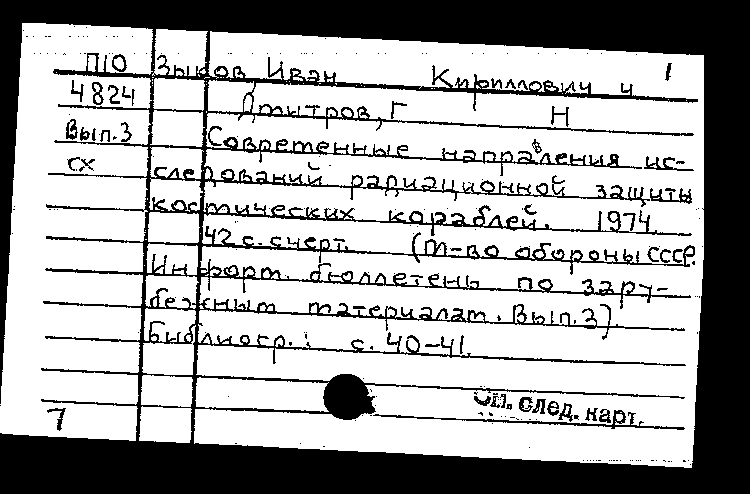 П10 Зыков, Иван Кириллович и 1
4824 Дмитров, Г Н
Вып.3 Современные направления ис-
сх следований радиационной защиты
космических кораблей. 1974.
42 с. с черт. (М-во обороны СССР.
Информ. бюллетень по зару-
бежным материалам. Вып.3).
Библиогр.: с. 40-41.
См. след. карт.
7